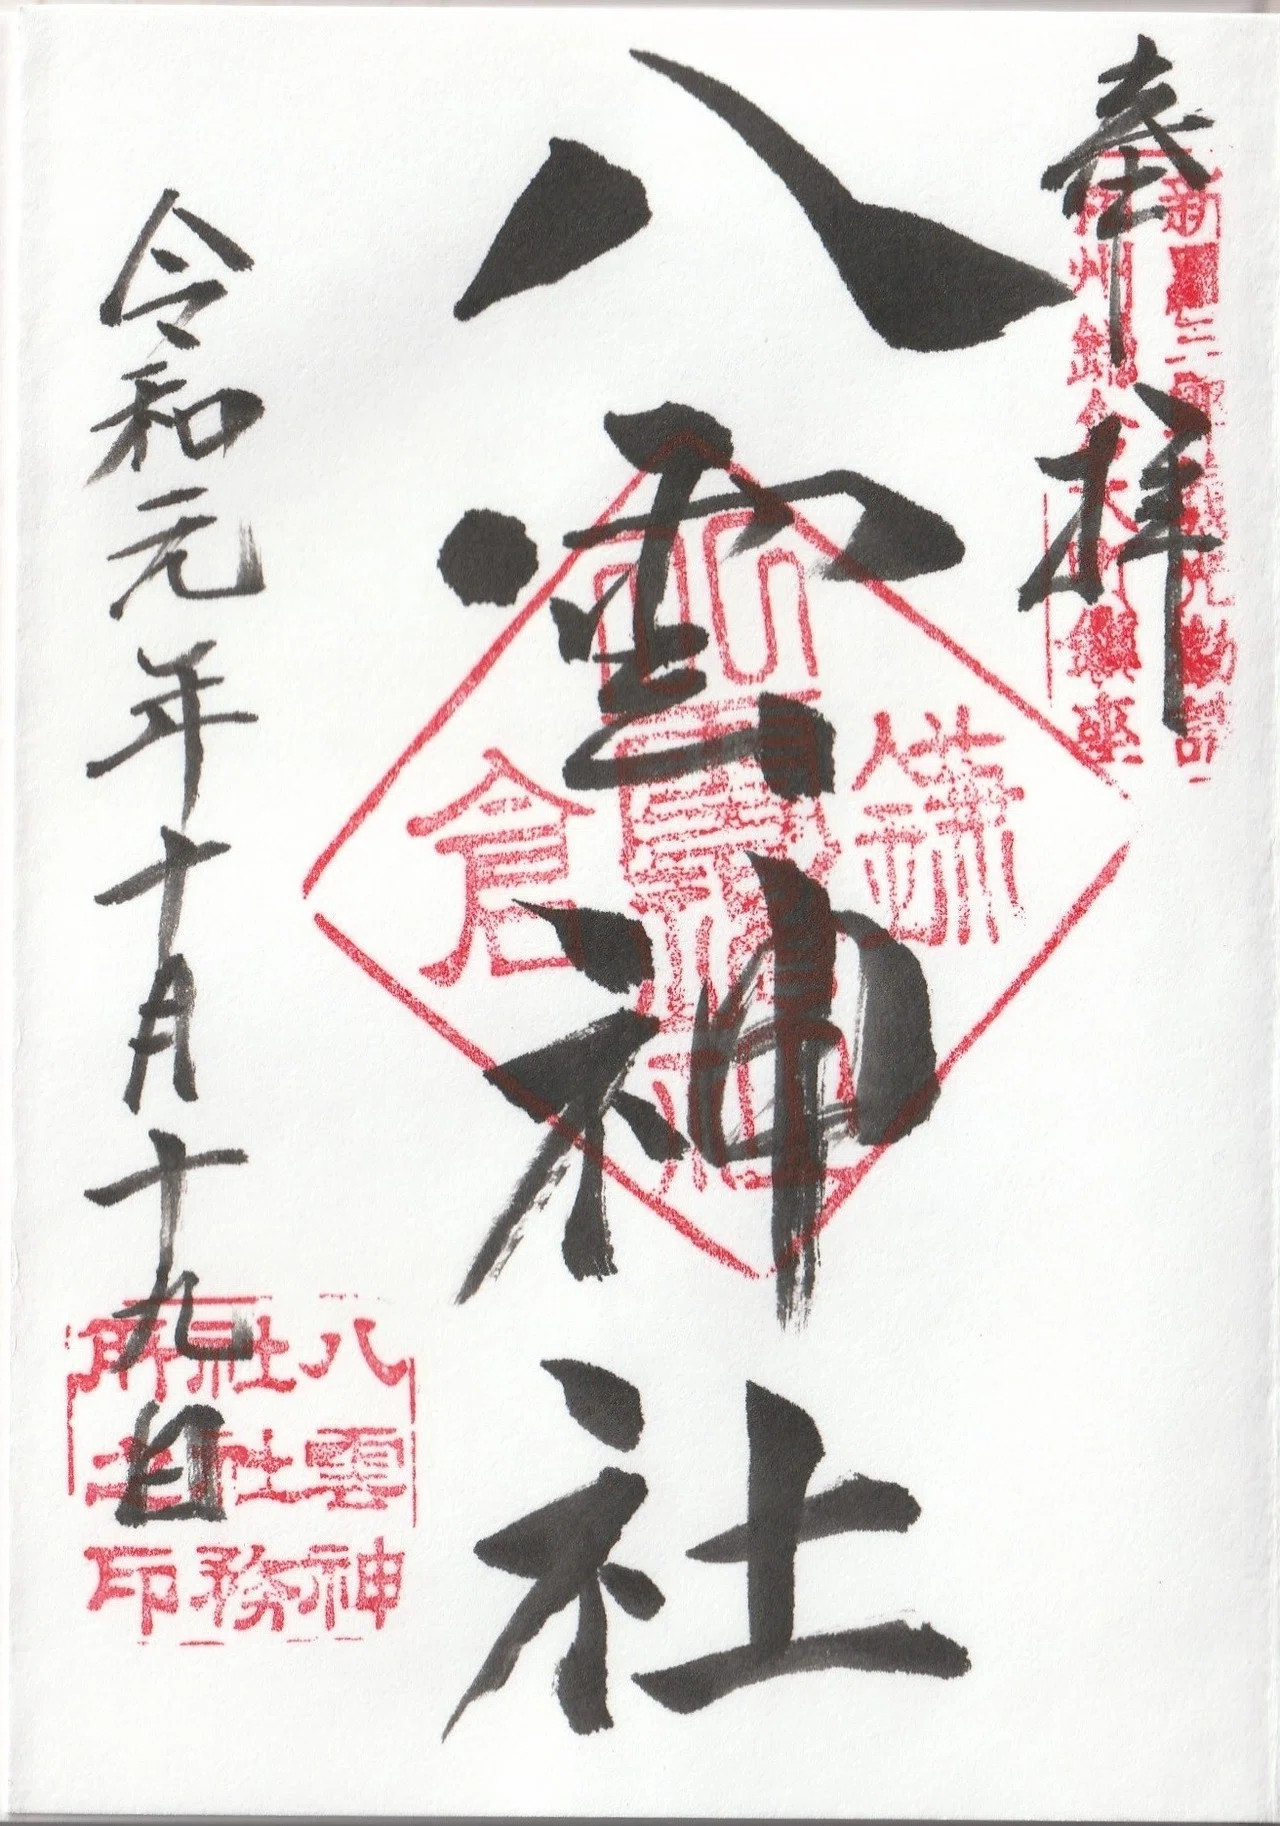 奉拝
相州鎌倉大町鎮座
八雲神社
鎌倉
八雲神社
令和元年十月十九日
八雲神
社社務
所之印